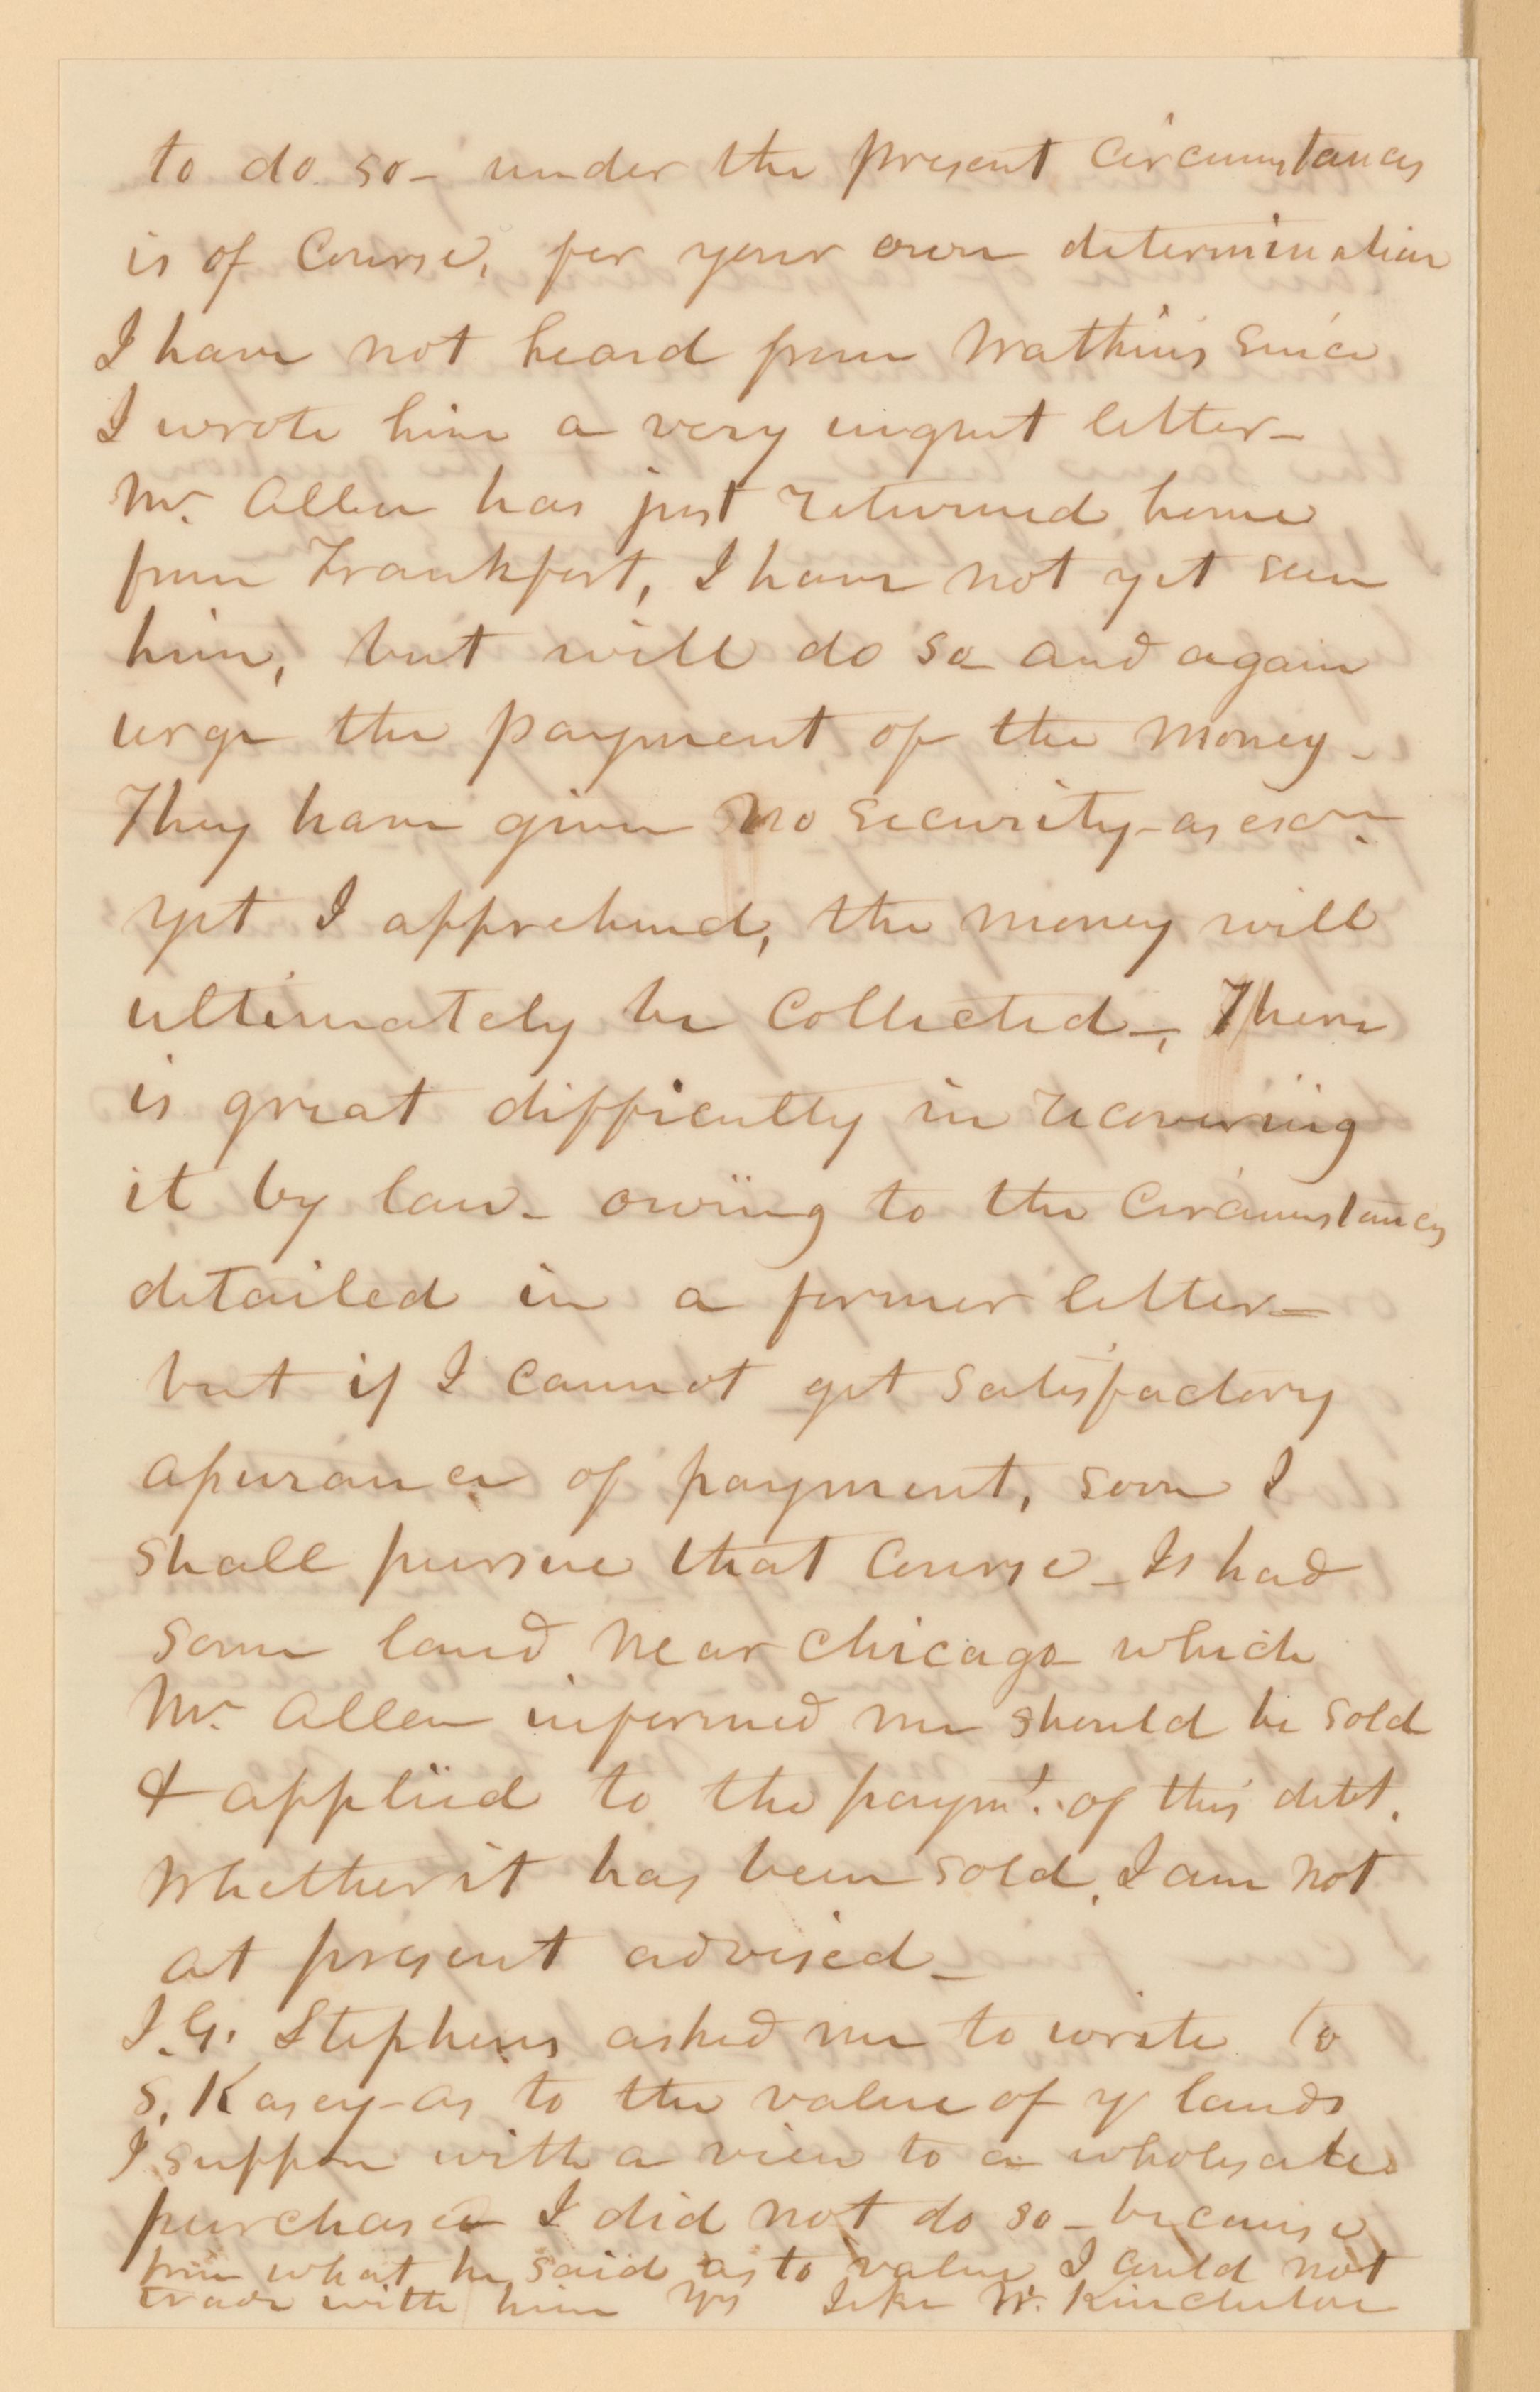 to do so - under the present circumstances
is of Course, for your own determination
I have not heard from Wathins since
I wrote him a very urgent letter -
Mr. Allen has just returned home
from Frankfort, I have not yet seen
him, but will do so and again
urge the payment of the money -
They have given no security - as
yet I apprehend, the money will
ultimately be Collected -, There
is great difficulty in recovering
it by law - owing to the Circumstances
detailed in a former letter -
but if I cannot get satisfactory
assurance of payment, soon I
shall pursue that Course - Is had
some land near Chicago which
Mr. Allen informed me should be sold
& applied to the paymt. of this debt.
Whether it has been sold, I am not
at present advised -
J. G. Stephens asked me to write to
S. Kasey - as to the value of yr lands
I suppose with a view to a wholesale
purchase I did not do so - because
from what he said as to value I could not
trade with him Yrs W. Kincheloe